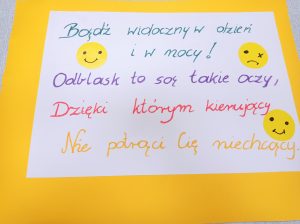 Bądź widoczny w dzień
i w nocy!
Odblask to są takie oczy,
Dzięki którym kierujący
Nie potrąci Cię niechcący.